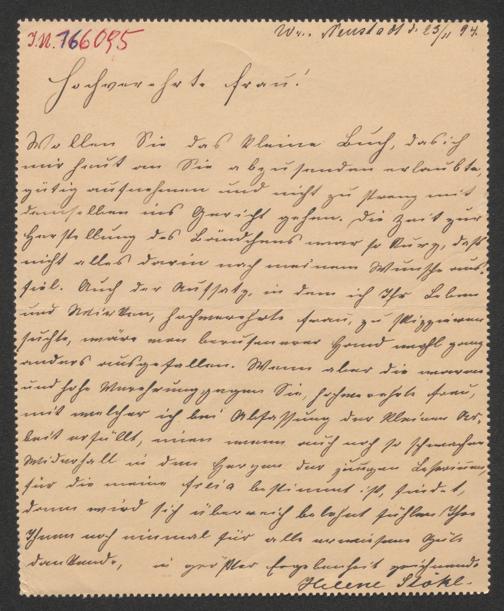 I.N. 166095
Wr. Neustadt d. 23/11 94.
Hochverehrte Frau!
Wollen Sie das kleine Buch, das ich
mir heut an Sie abzusenden erlaubte,
gütig aufnehmen und nicht zu streng mit
demselben ins Gericht gehen. Die Zeit zur
Herstellung des Bändchens war so kurz, daß
nicht alles darin nach meinem Wunsche aus-
fiel. Auch der Aufsatz, in dem ich Ihr Leben
und Wirken, hochverehrte Frau, zu skizzieren
suchte, wäre von berufenerer Hand wohl ganz
anders ausgefallen. Wenn aber die warme
und hohe Verehrung gegen Sie, hochverehrte Frau,
mit welcher ich bei Abfassung der kleinen Ar-
beit erfüllt, einen wenn auch noch so schwachen
Widerhall in den Herzen der jungen Leserinnen,
für die meine Freia bestimmt ist, findet,
dann wird sich überreich belohnt fühlen Ihre
Ihnen noch einmal für alle erwiesene Güte
dankende, in größter Ergebenheit zeichnende
Helene Stökl.